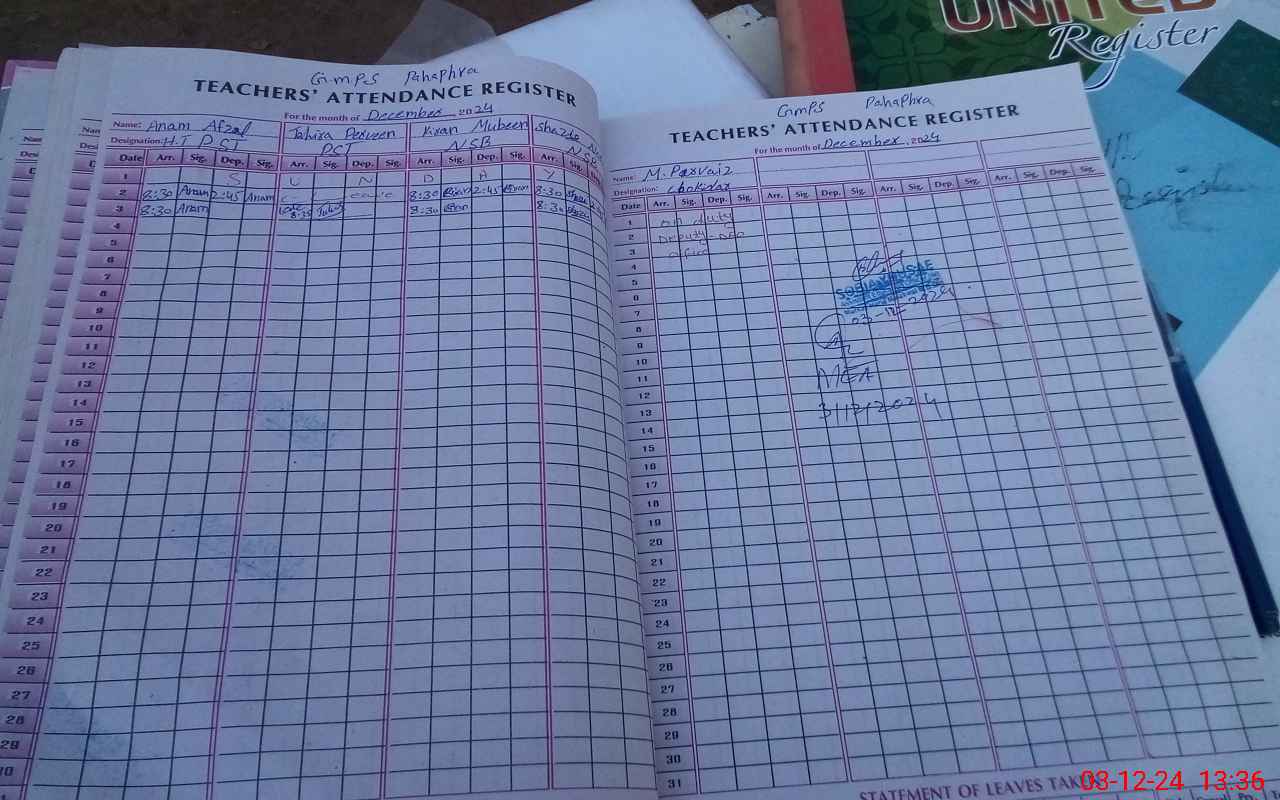 UNITED
Register
GMPS Pahaphra
TEACHERS' ATTENDANCE REGISTER
For the month of December 2024
Name: Anam Afzal Tahira Perveen Kiran Mubeen Shazda
Designation: H.T PST PST NSB NSB
Date Arr. Sig. Dep. Sig. Arr. Sig. Dep. Sig. Arr. Sig. Dep. Sig. Arr. Sig.
1 S U N D A Y
2 8:30 Anam 2:45 Anam leave 8:30 Kiran 2:45 Kiran 8:30
3 8:30 Anam Late 8:35 8:30 Kiran 8:30
4
5
6
7
8
9
10
11
12
13
14
15
16
17
18
19
20
21
22
23
24
25
26
27
28
29
30
GMPS Pahaphra
TEACHERS' ATTENDANCE REGISTER
For the month of December 2024
Name: M. Parvaiz
Designation: Chokidar
Date Arr. Sig. Dep. Sig. Arr. Sig. Dep. Sig. Arr. Sig. Dep. Sig. Arr. Sig. Dep. Sig.
1 on duty
2 Deputy-DEO
3 office
4
5
6
7
8
9
10
11
12
13
14
15
16
17
18
19
20
21
22
23
24
25
26
27
28
29
30
31
03-12-2024
MEA
3/12/2024
STATEMENT OF LEAVES TAKEN
03-12-24 13:36